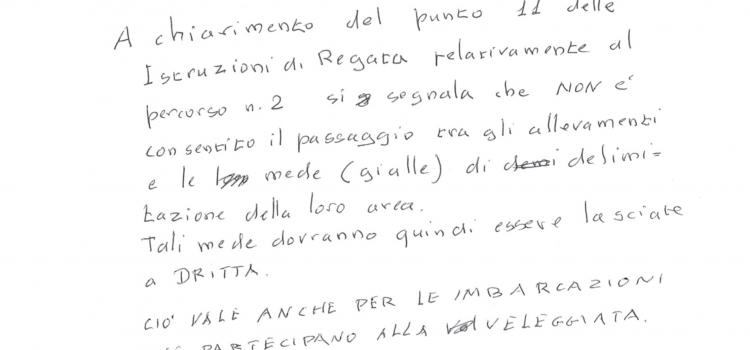 A chiarimento del punto 11 delle
Istruzioni di Regata relativamente al
percorso n. 2 si segnala che NON e'
consentito il passaggio tra gli allevamenti
e le mede (gialle) di delimi=
tazione della loro area.
Tali mede dovranno quindi essere lasciate
a DRITTA.
CIO' VALE ANCHE PER LE IMBARCAZIONI
PARTECIPANO ALLA VELEGGIATA.